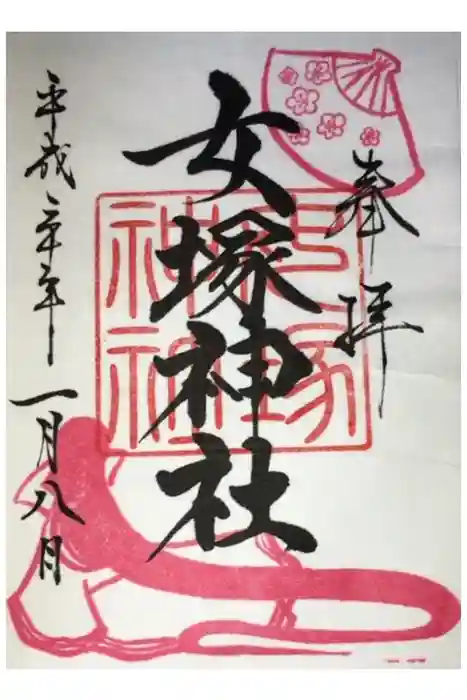 奉拝
女塚神社
女塚
神社
平成 十年 一月八日